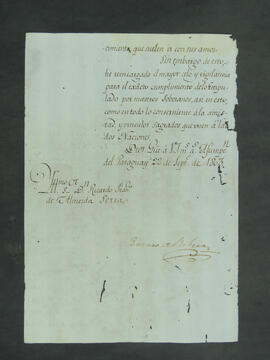 que suelen ir con sus amos.
Sin embargo de esto,
he reencargado el mayor celo y vigilancia
para el exacto cumplimiento de lo estipu-
lado por nuestros Soberanos, asi en esto,
como en todo lo concerniente à la amis-
tad, y vinculos sagrados que unen à las
dos Naciones.
Dios gûe à V.S. m.s a.s
del Paraguay 22 de Sep.e de
Ricardo Fran.co
de Almeida Serra